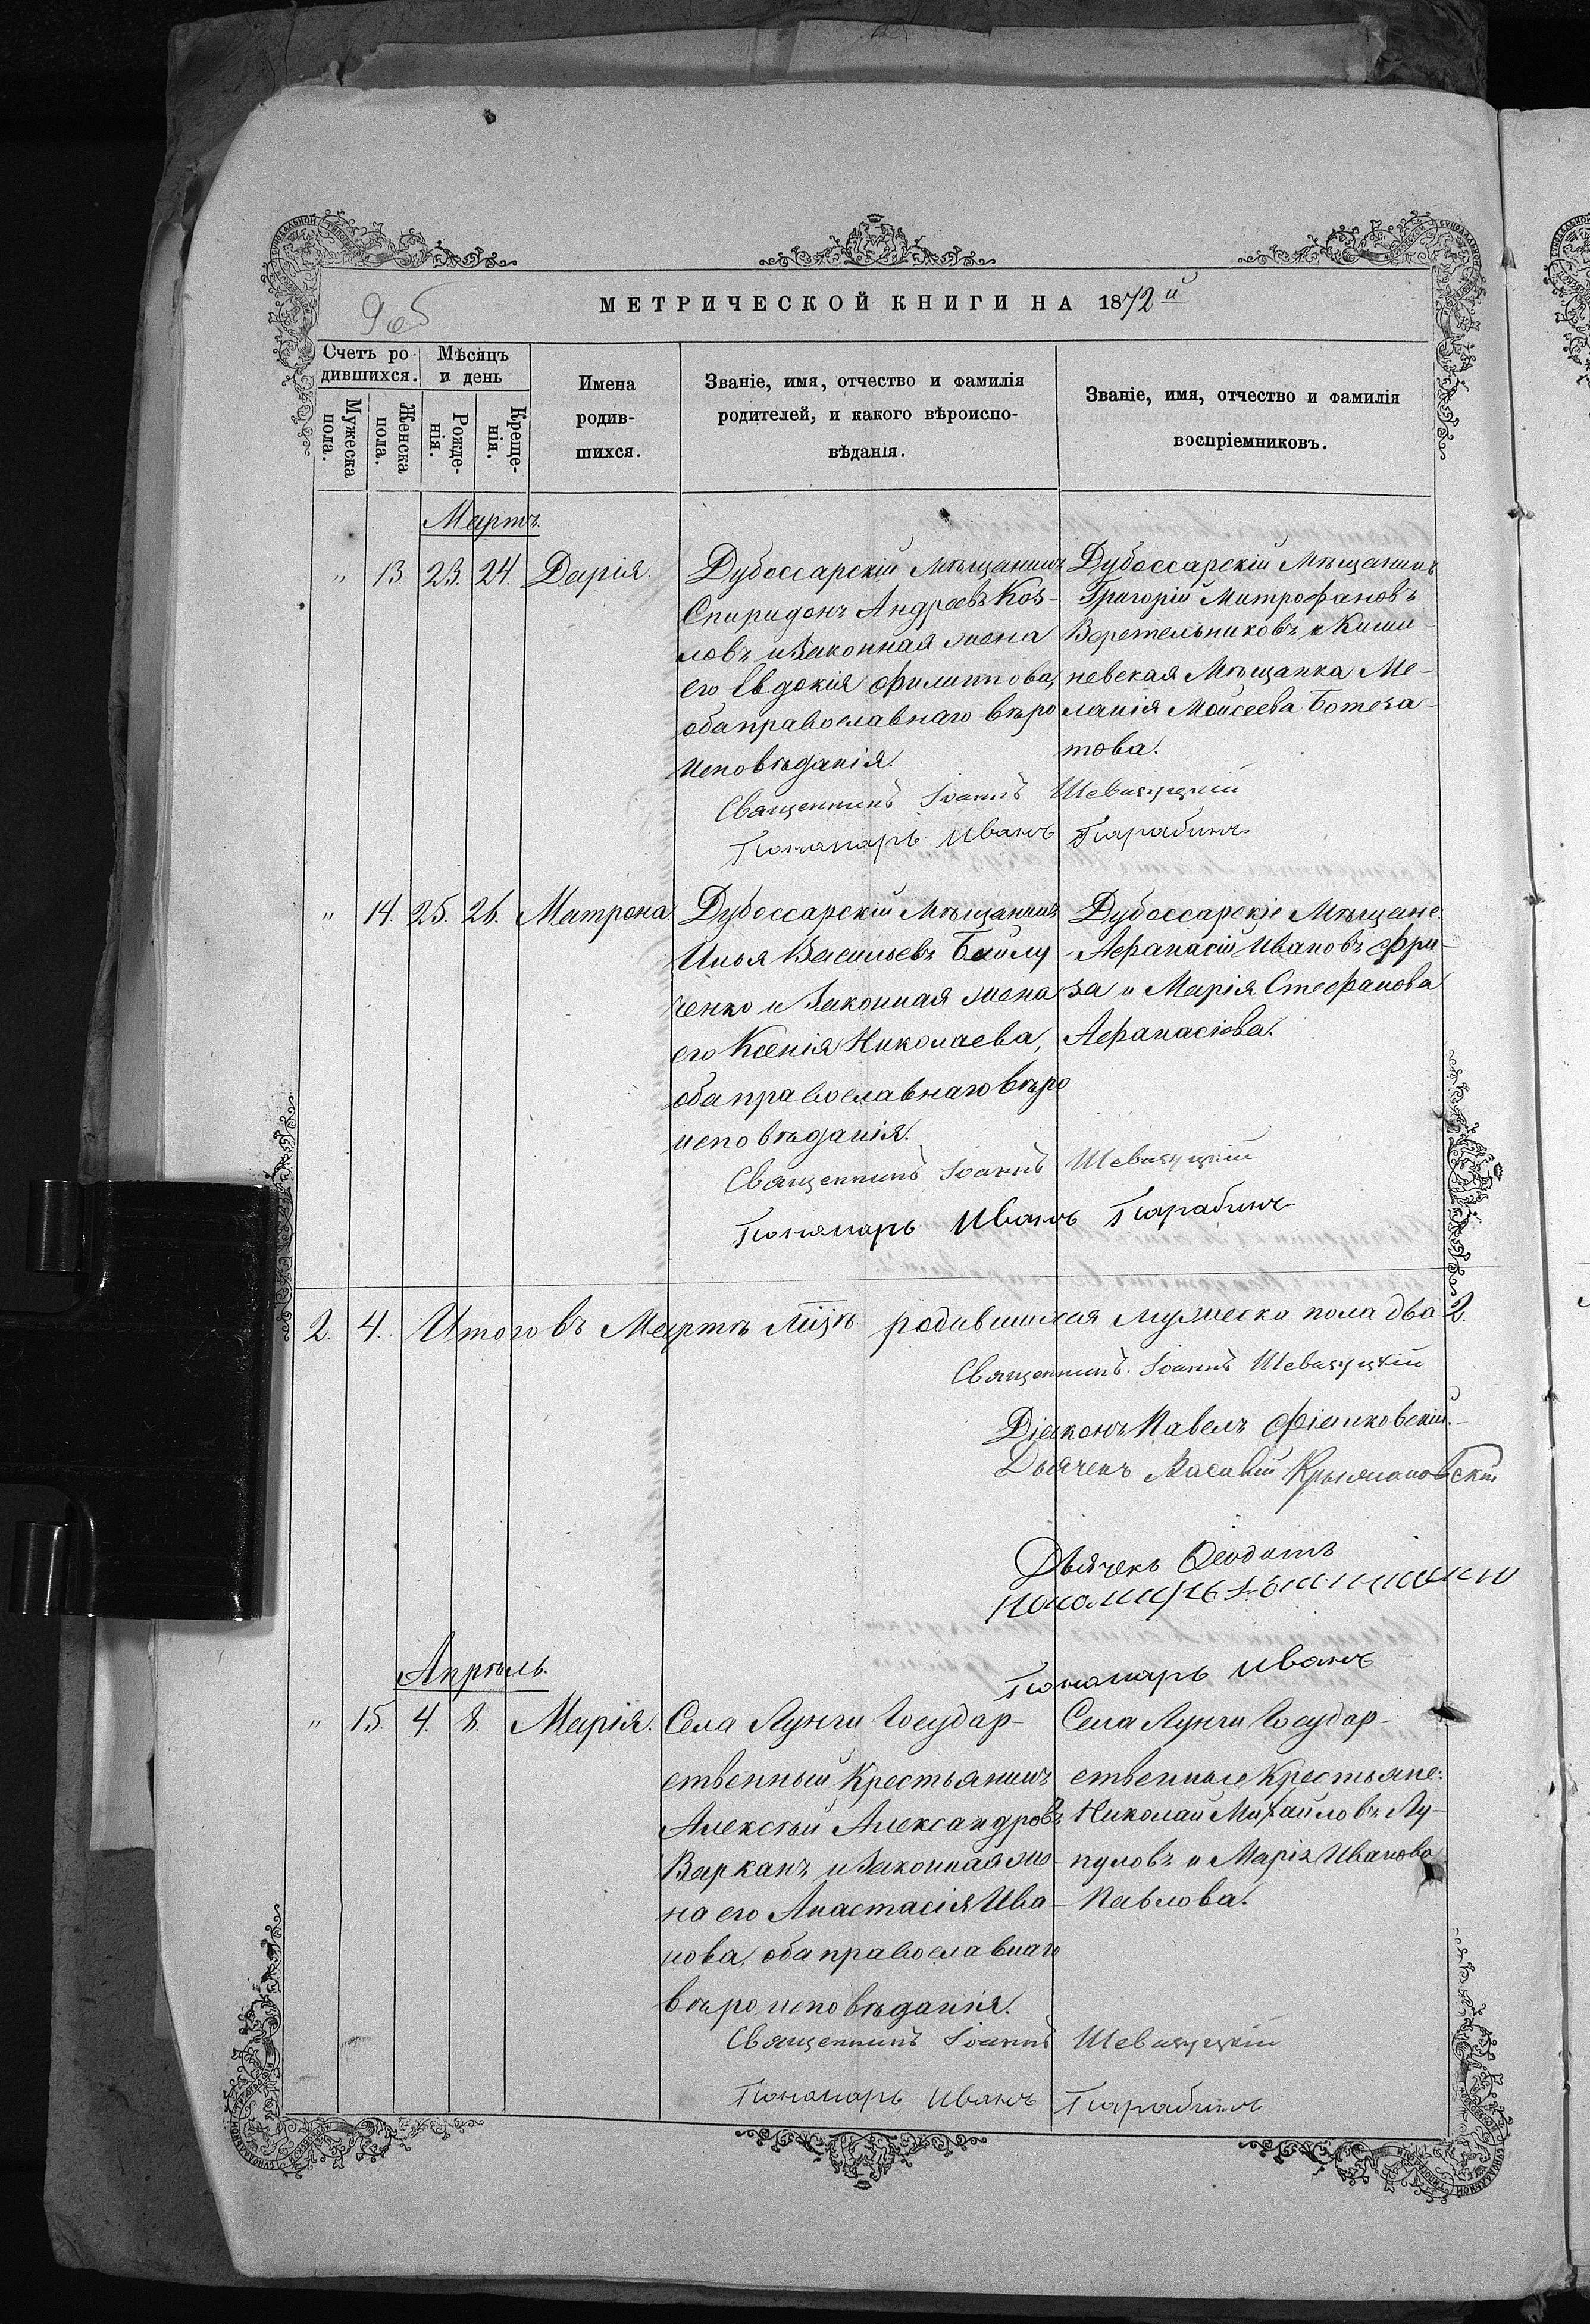 МЕТРИЧЕСКОЙ КНИГИ НА 1872й
9об
Счетъ ро-
дившихся.
Мѣсяцъ
и день
Мужеска
пола.
Женска
пола.
Рожде-
нія.
Креще-
нія.
Имена
родив-
шихся.
Званіе, имя, отчество и фамилія
родителей, и какого вѣроиспо-
вѣданія.
Званіе, имя, отчество и фамилія
воспріемниковъ.
Мартъ.
" 13. 23. 24. Дарія.
Дубоссарскій Мѣщанинъ
Спиридонъ Андреевъ Коз-
ловъ и Законная жена
его Евдокія Филиппова,
оба православнаго вѣро
исповѣданія.
Дубоссарскій Мѣщанинъ
Григорій Митрофановъ
Веретельниковъ и Киши-
невская Мѣщанка Ме-
ланія Моисеева Ботеза-
това.
Священникъ Іоаннъ
Пономарь Иванъ
" 14. 25. 26. Матрона.
Дубоссарскій Мѣщанинъ
Илья Васильевъ Байлу
ченко и Законная жена
его Ксенія Николаева,
оба православнаго вѣро
исповѣданія.
Дубоссарскіе Мѣщане
Афанасій Ивановъ Фри-
за и Марія Стефанова
Афанасіова.
Священникъ Іоаннъ
Пономарь Иванъ
2. 4. Итого въ Мартѣ мцѣ родившихся мужеска пола два 2.
Священникъ Іоаннъ
Діаконъ Павелъ Фіалковскій.
Дьячекъ Василій
Дьячекъ Феодотъ
Пономарь Иванъ
Апрѣль.
" 15. 4. 8. Марія.
Села Лунги Государ-
ственный Крестьянинъ
Алексѣй Александровъ
Варканъ и Законная же-
на его Анастасія Ива-
нова, оба православнаго
вѣроисповѣданія.
Села Лунги Государ-
ственные Крестьяне:
Николай Михайловъ Лу-
пуловъ и Марія Иванова
Павлова.
Священникъ Іоаннъ
Пономарь Иванъ